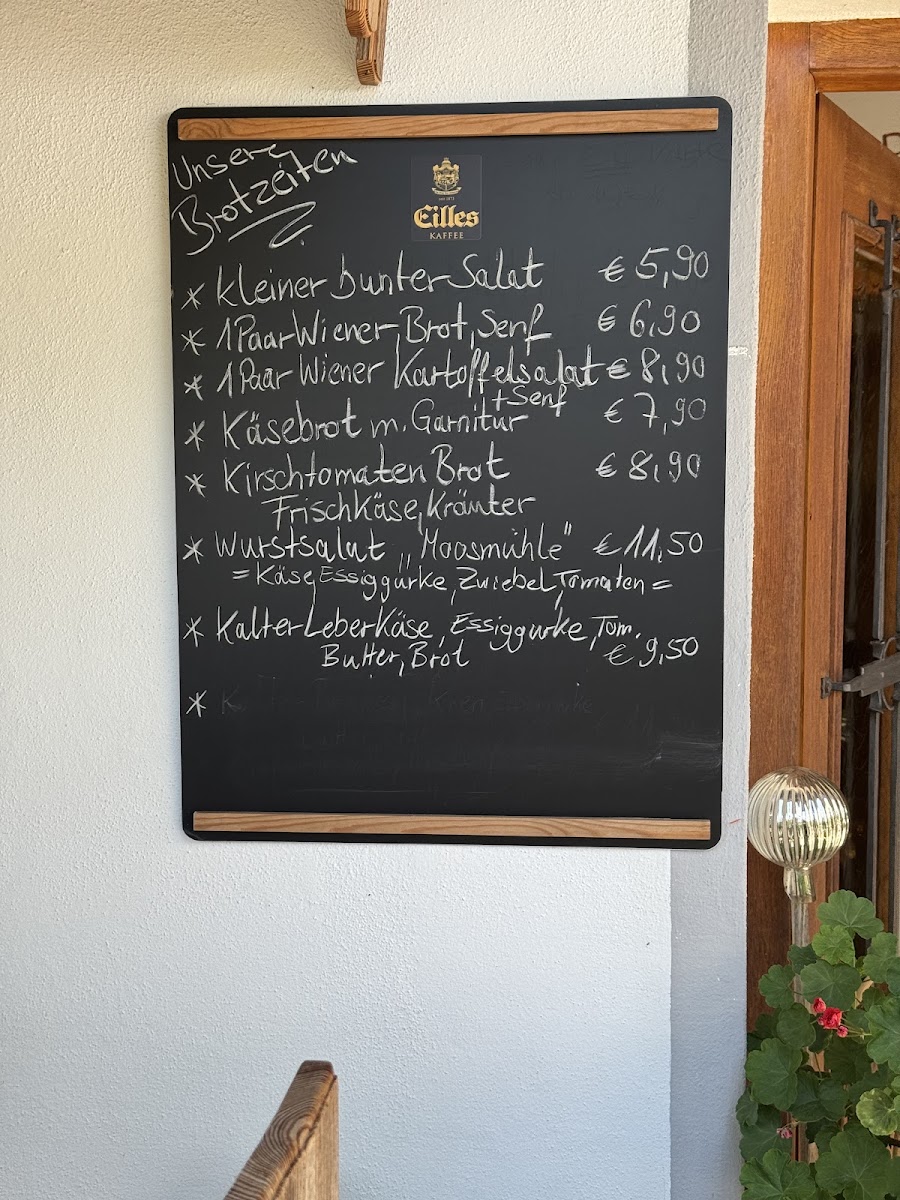 Unsere
Brotzeiten
Eilles
KAFFEE
* Kleiner bunter Salat € 5,90
* 1 Paar Wiener, Brot, Senf € 6,90
* 1 Paar Wiener Kartoffelsalat € 8,90
+ Senf
* Käsebrot m. Garnitur € 7,90
* Kirschtomaten Brot € 8,90
Frischkäse, Kräuter
* Wurstsalat „Moosmühle" € 11,50
= Käse, Essiggurke, Zwiebel, Tomaten =
* Kalter Leberkäse, Essiggurke, Tom.
Butter, Brot € 9,50
*